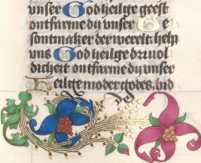 vnser God heilige geest
ontfarme dy vnser
sontmaker der werelt help
vns God heilige dzuol
dicheit ontfarme dy vnser
eilige moder godes bid